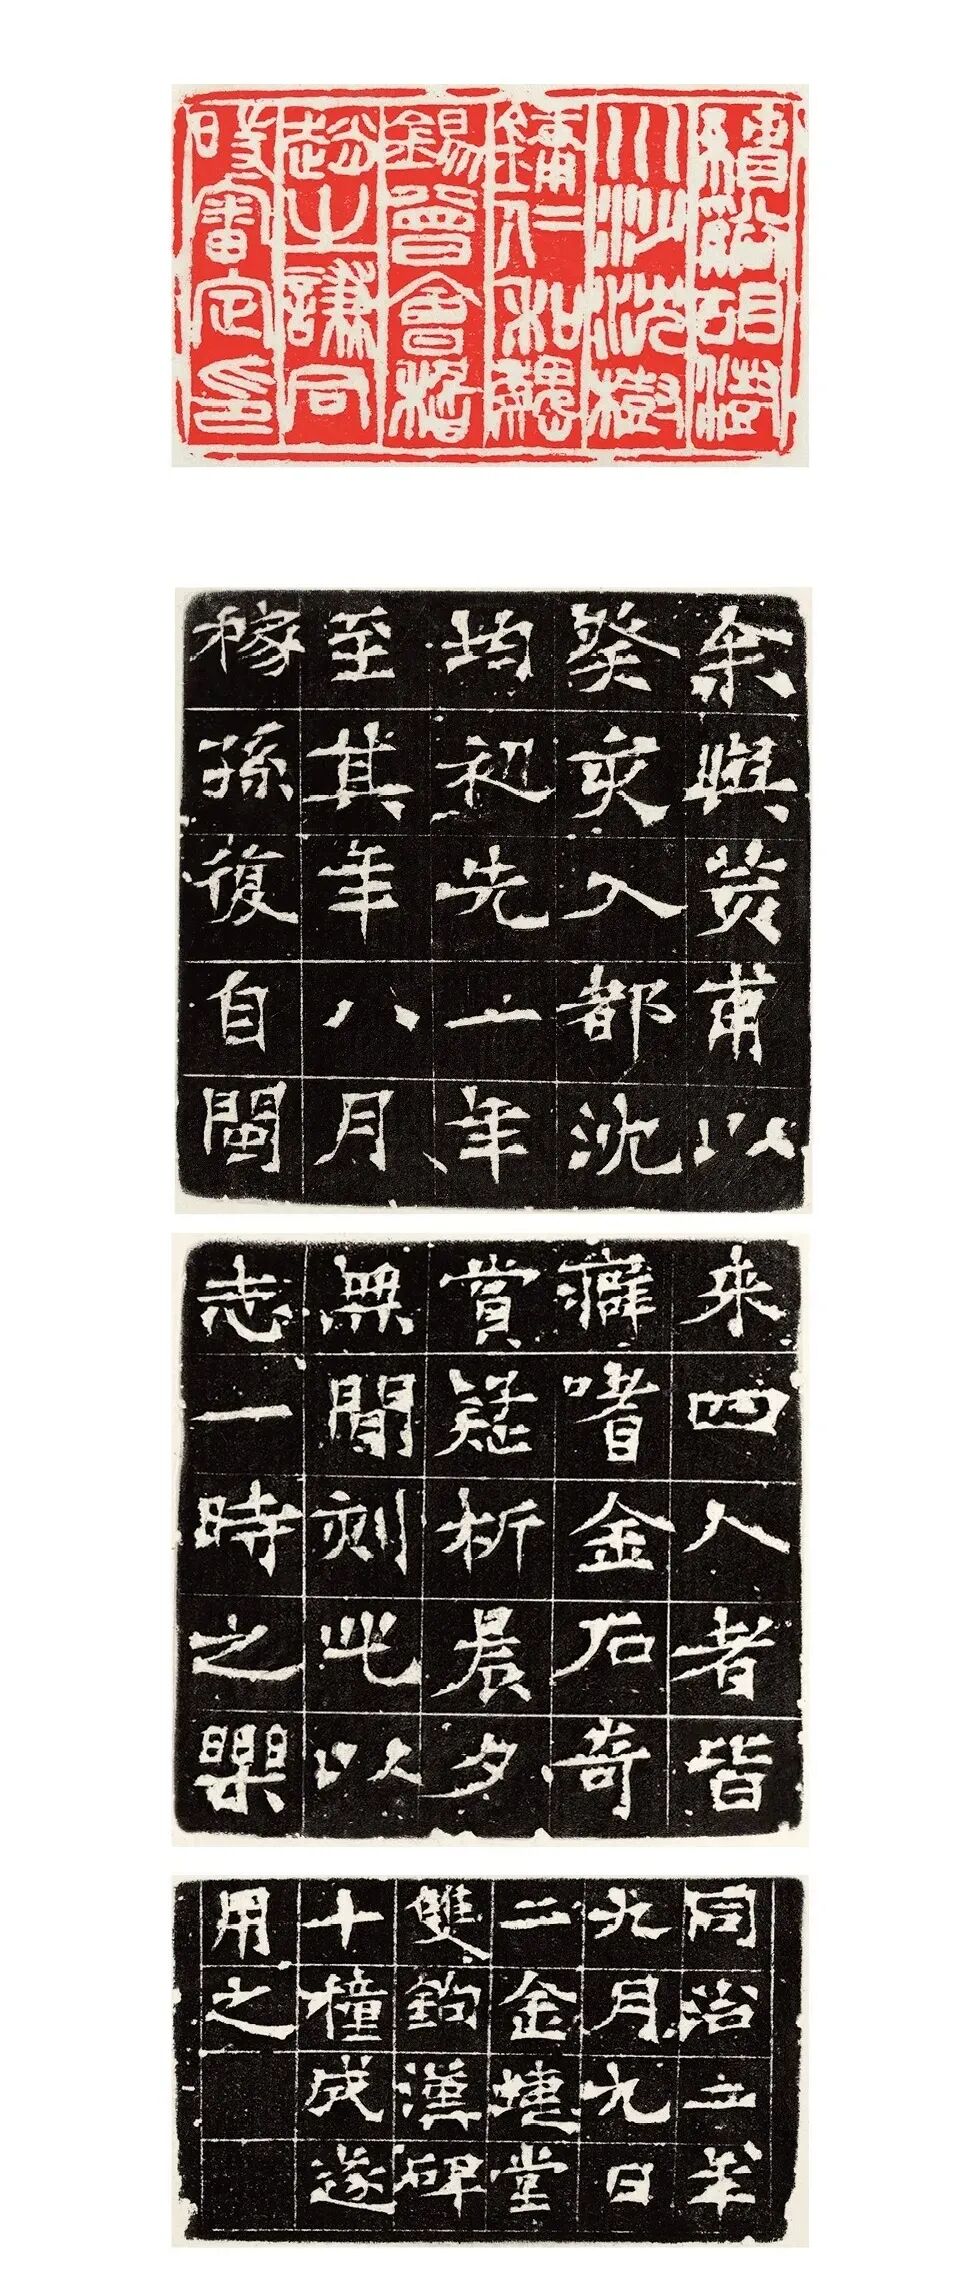 績谿胡澍
川沙沈樹
鏞仁和魏
錫曾會稽
趙之謙同
時審定印
余與荄甫以
癸亥入都沈
均初先一年
至其年八月
稼孫復自閩
來四人者皆
癖嗜金石奇
賞疑析晨夕
無閒刻此以
志一時之樂
同治二年
九月九日
二金蜨堂
雙鉤漢碑
十種成遂
用之